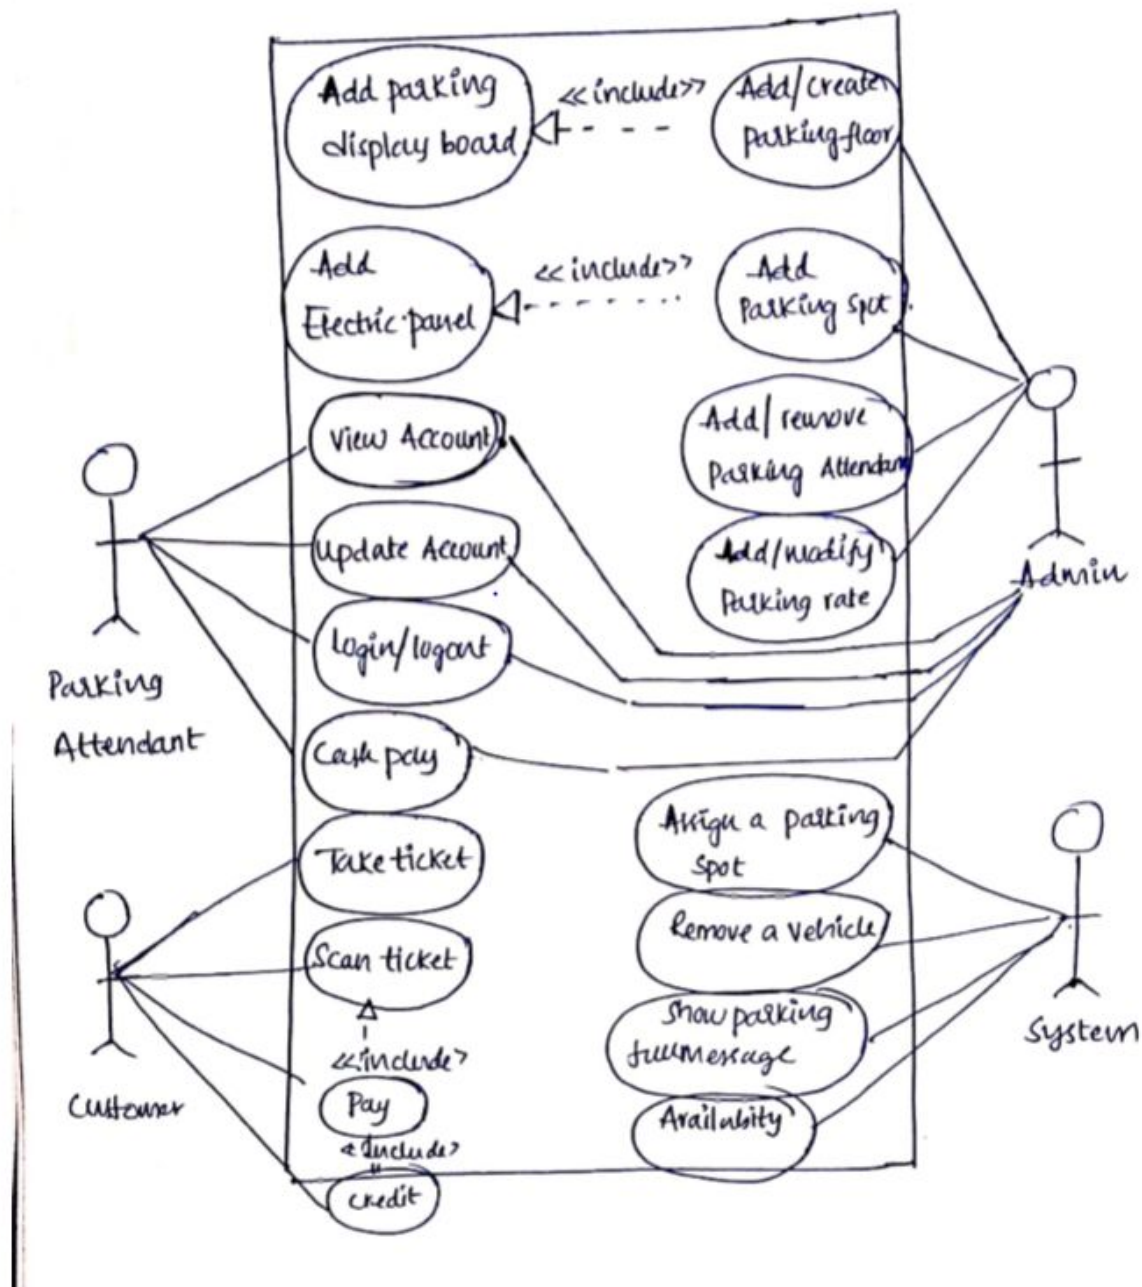 Add parking
display board
<<include>>
Add/create
parking floor
Add
Electric panel
<<include>>
Add
Parking spot
View Account
Add/remove
Parking Attendant
Update Account
Add/modify
Parking rate
Admin
Login/logout
Parking
Attendant
Cash pay
Assign a parking
spot
Take ticket
Remove a vehicle
Scan ticket
Show parking
full message
System
<<include>
Customer
Pay
Availabity
<include>
credit